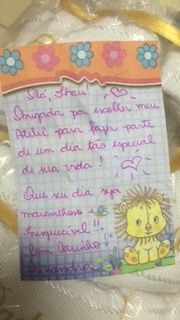 Olá, Thais!
Obrigada por escolher meu
Ateliê para fazer parte
de um dia tão especial
de sua vida!
Que seu dia seja
maravilhoso e
inesquecível!!
Com carinho